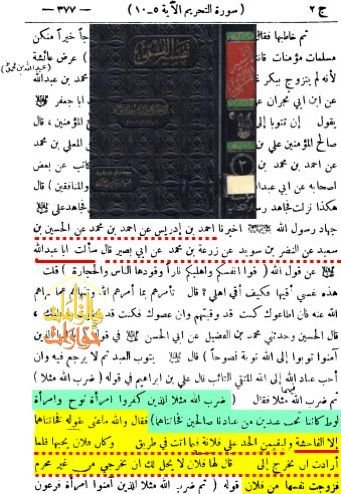 ج ٢ (سورة التحريم الآية ٥ ـ ١٠) ـ ٣٧٧ ـ
ثم خاطبها فقال جاً خيراً منكن
مسلمات مؤمنات قانتا عرض عائشة
لأنه لم يتزوج ببكر محمد عن عبدالله
(عبدالله بن محمد خ)
عن ابن ابي نجران ابا جعفر عليه السلام
يقول إن تتوبا إلى المؤمنين ، قال
صالح المؤمنين علي المعلى بن محمد
عن احمد بن محمد كاتب عن بعض
اصحابه عن ابي عبدالله والمنافقين ) قال
هكذا نزلت فجاهد فجاهد علي
تفسير القمي
٢
جهاد رسول الله اخبرنا احمد بن إدريس عن احمد بن محمد عن الحسين بن
سعيد عن النضر بن سويد عن زرعة بن محمد عن ابي بصير قال سألت ابا عبدالله
عن قول الله ( قوا انفسكم واهليكم ناراً وقودها الناس والحجارة ) قلت
هذه نفسي أقيها فكيف أقي اهلي ؟ قال تأمرهم بما أمرهم الله وتنهاهم عما نهاهم
الله عنه فان اطاعوك كنت قد وقيتهم وان عصوك فكنت قد قضيت ما عليك ،
قال الحسين وحدثني محمد بن الفضيل عن ابي الحسن في قوله ( يا ايها الذين
آمنوا توبوا إلى الله توبة نصوحاً ) قال يتوب العبد ثم لا يرجع فيه وان
احب عباد الله إلى الله المتقي التائب قال علي بن ابراهيم في قوله ( ضرب الله مثلا )
ثم ضرب الله مثلا فقال ( ضرب الله مثلا للذين كفروا امرأة نوح وامرأة
لوط كانتا تحت عبدين من عبادنا صالحين فخانتاهما ) فقال والله ماعنى بقوله فخانتاهما
إلا الفاحشة وليقيمن الحد على فلانة فيما اتت في طريق وكان فلان يحبها فلما
أرادت ان تخرج إلى قال لها فلان لا يحل لك ان تخرجي من غير محرم
فزوجت نفسها من فلان قوله ( ضرب الله مثلا للذين آمنوا امرأة فرعون